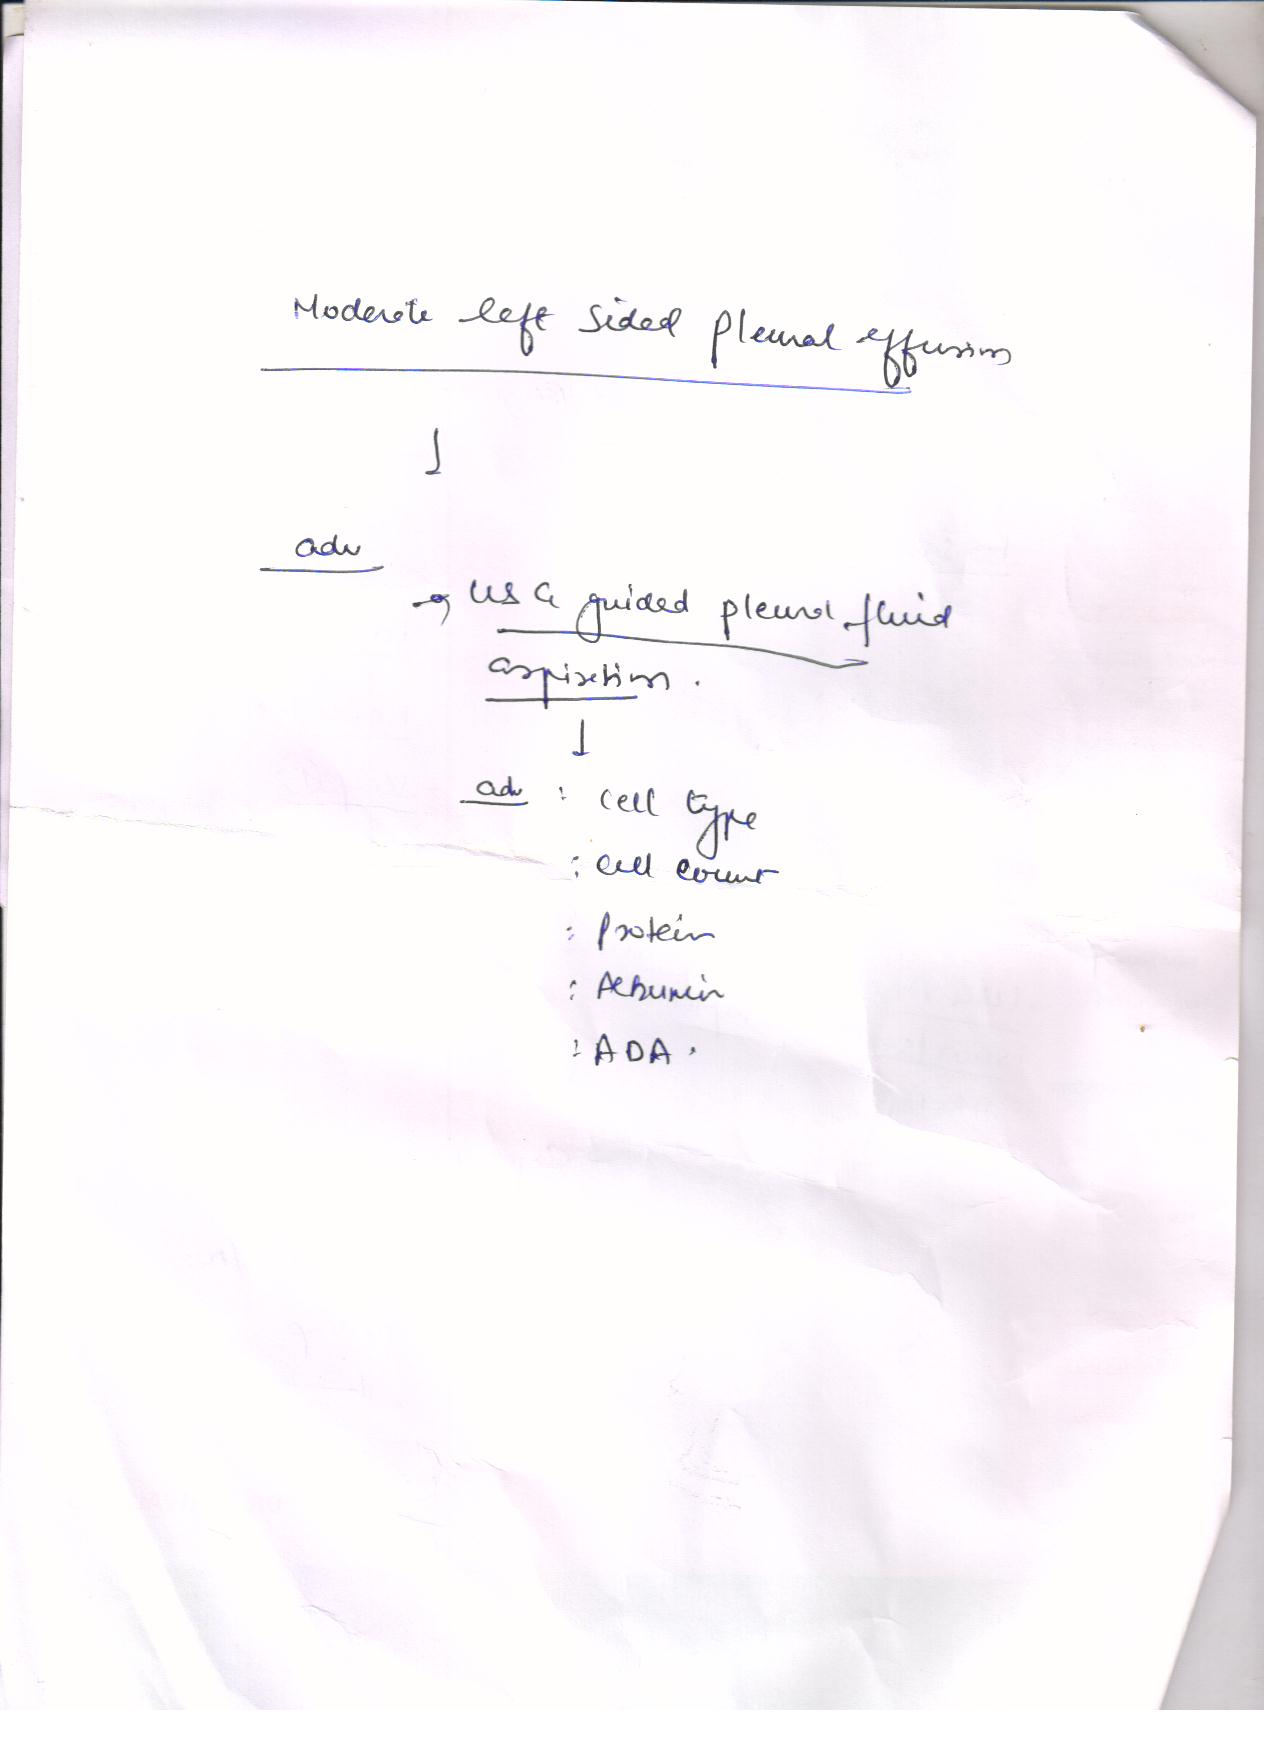 Moderate left sided pleural effusion
↓
adv
→ USG guided pleural fluid
aspiration.
↓
adv : cell type
: cell count
: Protein
: Albumin
: ADA.